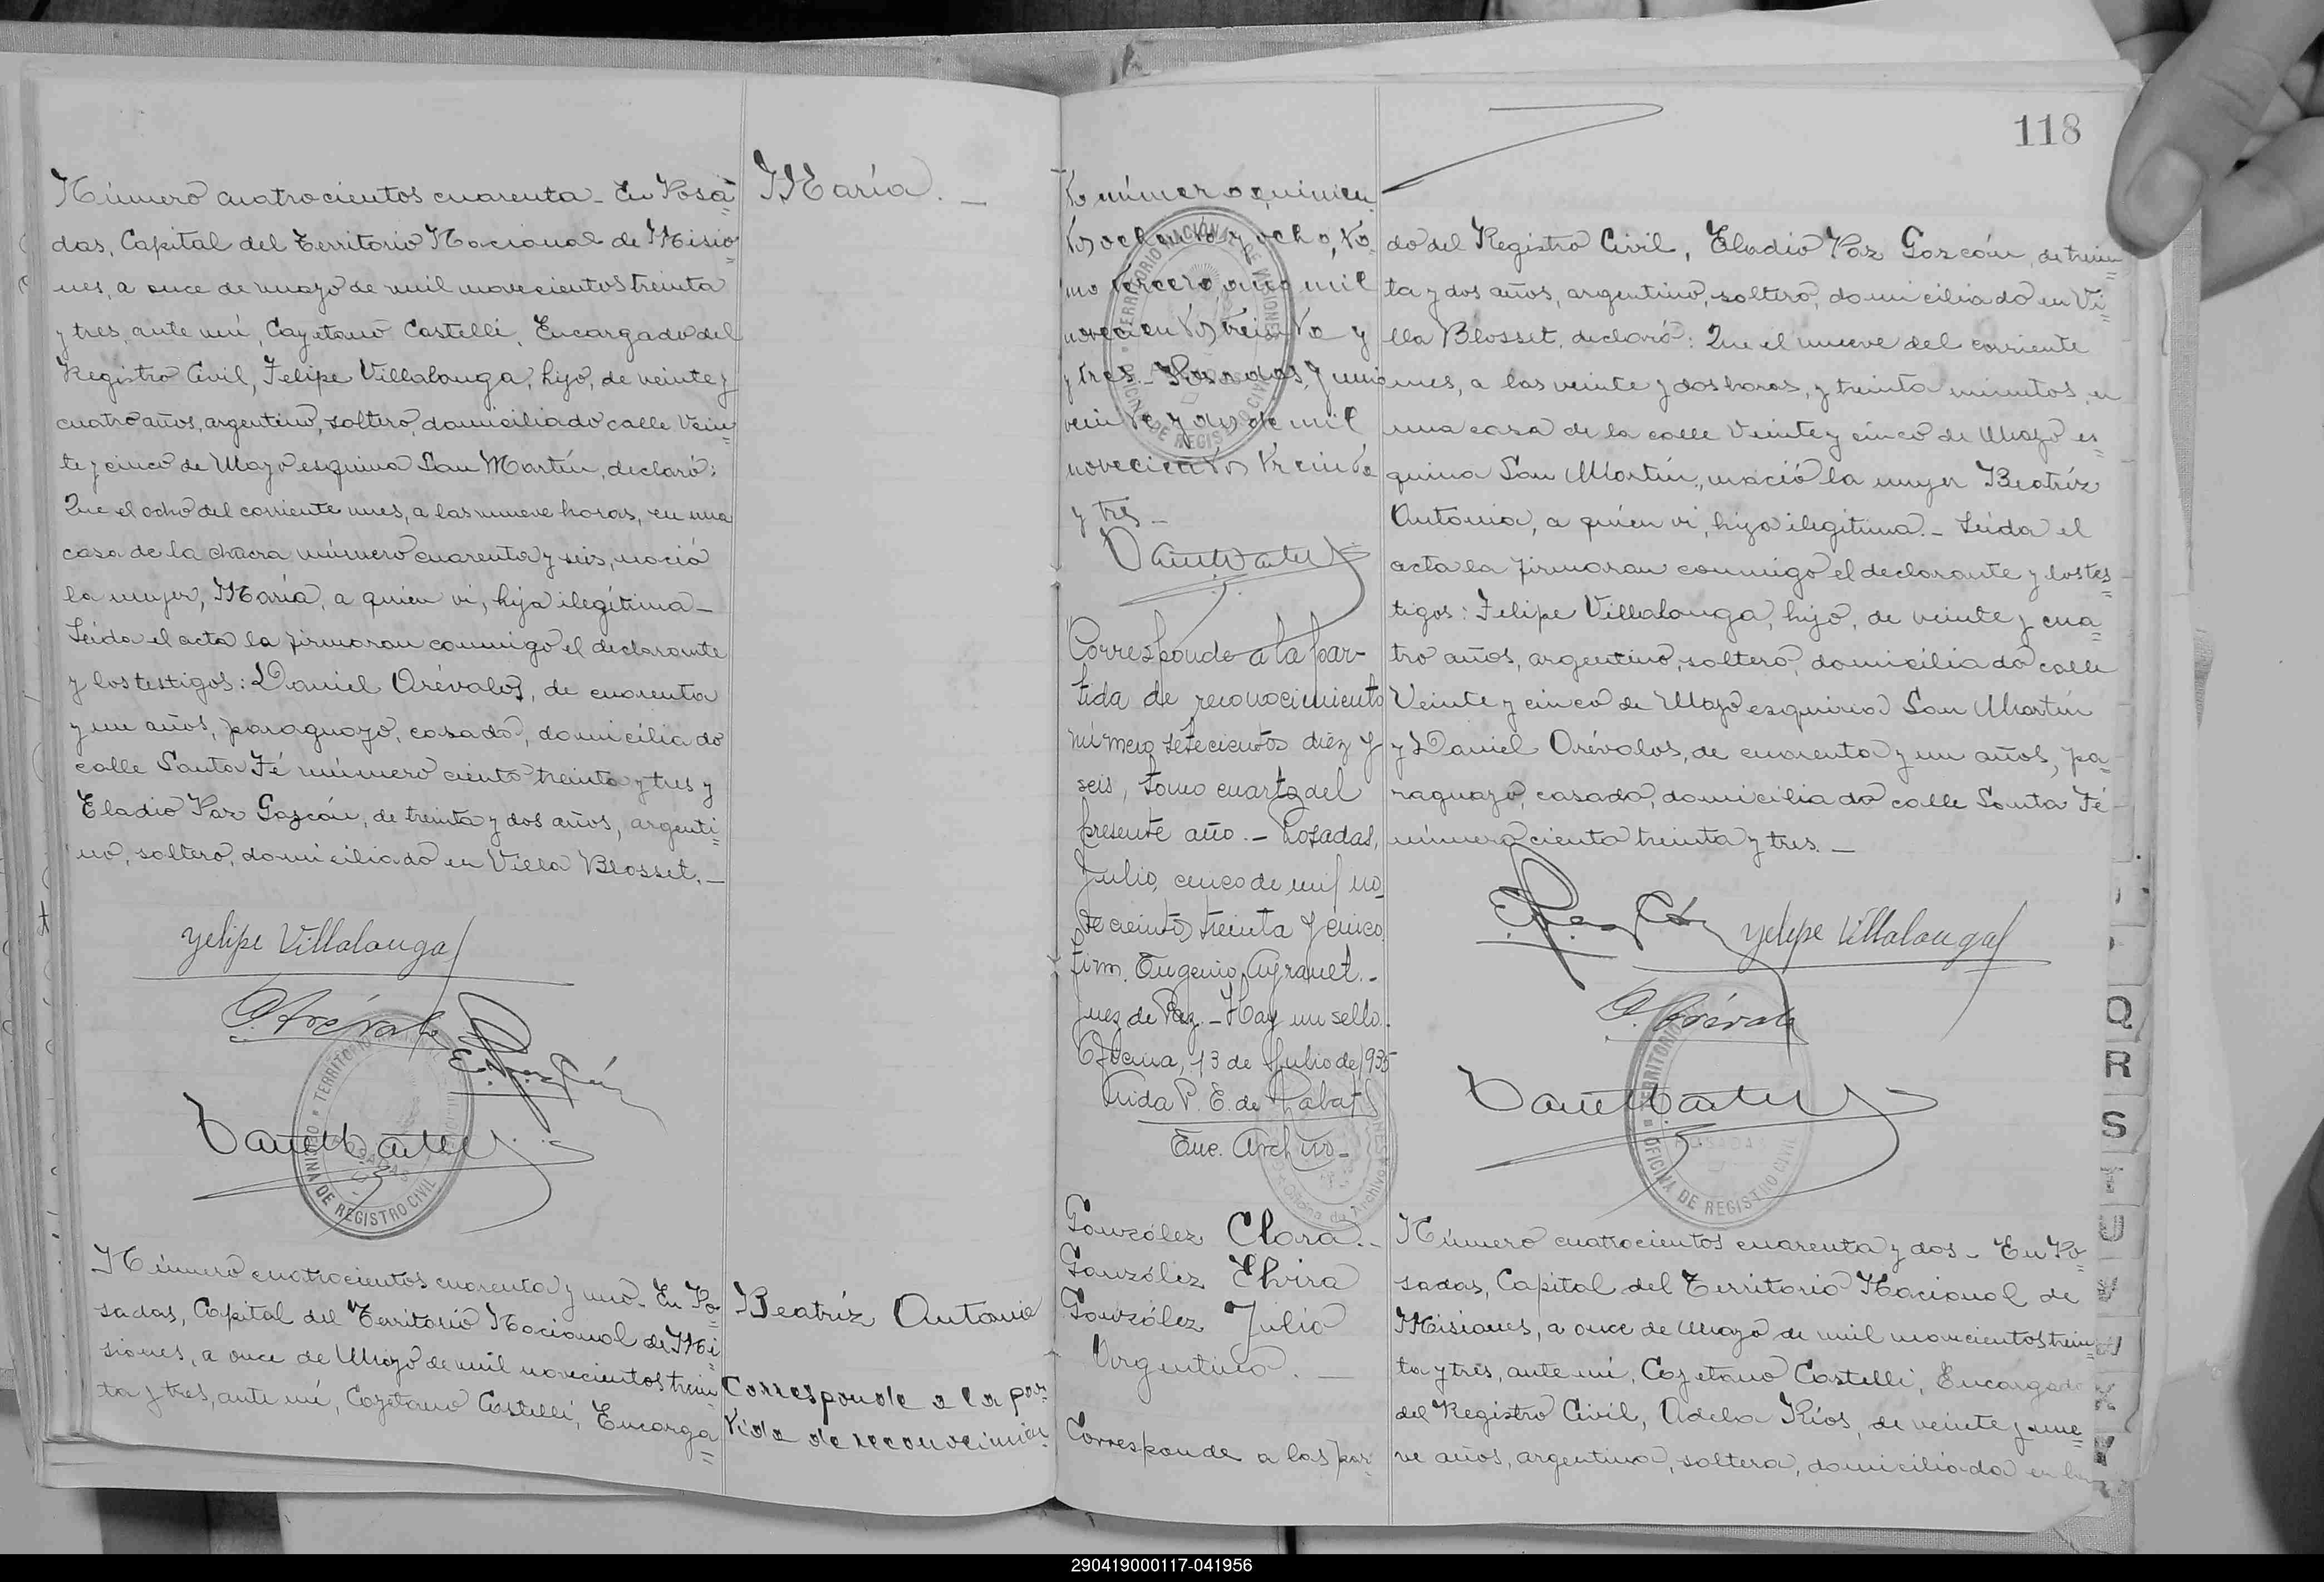 Número cuatrocientos cuarenta - En Posa=
das, Capital del Territorio Nacional de Misio=
nes, a once de mayo de mil novecientos treinta
y tres, ante mí, Cayetano Castelli, Encargado del
Registro Civil, Felipe Villalonga, hijo, de veinte y
cuatro años, argentino, soltero, domiciliado calle Vein=
te y cinco de Mayo esquina San Martín, declaró:
Que el ocho del corriente mes, a las nueve horas, en una
casa de la chacra número cuarenta y seis, nació
la mujer, María, a quien vi, hija ilegítima -
Leída el acta la firmaron conmigo el declarante
y los testigos: Daniel Arévalos, de cuarenta
y un años, paraguayo, casado, domiciliado
calle Santa Fé número ciento treinta y tres y
Eladio Paz Gazcón, de treinta y dos años, argenti=
no, soltero, domiciliado en Villa Blosset. -
Felipe Villalonga
D. Arévalo
Número cuatrocientos cuarenta y uno - En Po=
sadas, Capital del Territorio Nacional de Mi=
siones, a once de Mayo de mil novecientos trein
ta y tres, ante mí, Cayetano Castelli, Encarga=
María. -
Beatríz Antonia
Corresponde a la par=
tida de reconocimien=
to número quinien
tos ochenta y ocho, to
mo tercero, año mil
novecientos treinta y
y tres. - Posadas, Junio
veinte y dos de mil
novecientos treinta
y tres -
Corresponde a la par-
tida de reconocimiento
número setecientos diez y
seis, tomo cuarto del
presente año. - Posadas,
Julio, cinco de mil no
vecientos treinta y cinco
firm. Eugenio
Juez de Paz. - Hay un sello.
Oficina, 13 de Julio de 1935
P. E. de
Enc. Archivo -
González Clara. -
González Elvira
González Julio
Argentino. -
Corresponde a las par=
118
do del Registro Civil, Eladio Paz Gozcón, de trein=
ta y dos años, argentino, soltero, domiciliado en Vi=
lla Blosset, declaró: Que el nueve del corriente
mes, a las veinte y dos horas, y treinta minutos, en
una casa de la calle Veinte y cinco de Mayo es=
quina San Martín, nació la mujer Beatríz
Antonia, a quien vi, hija ilegítima. - Leída el
acta la firmaron conmigo el declarante y los tes=
tigos: Felipe Villalonga, hijo, de veinte y cua=
tro años, argentino, soltero, domiciliado calle
Veinte y cinco de Mayo esquina San Martín
y Daniel Arévalos, de cuarenta y un años, pa=
raguayo, casado, domiciliado calle Santa Fé
número ciento treinta y tres. -
Felipe Villalonga
D. Arévalo
Número cuatrocientos cuarenta y dos - En Po=
sadas, Capital del Territorio Nacional de
Misiones, a once de Mayo de mil novecientos trein=
ta y tres, ante mí, Cayetano Castelli, Encargado
del Registro Civil, Adela Ríos, de veinte y nue=
ve años, argentina, soltera, domiciliada en la
Q
R
S
T
U
V
X
Y
TERRITORIO NACIONAL DE MISIONES
OFICINA DE REGISTRO CIVIL
POSADAS
290419000117-041956